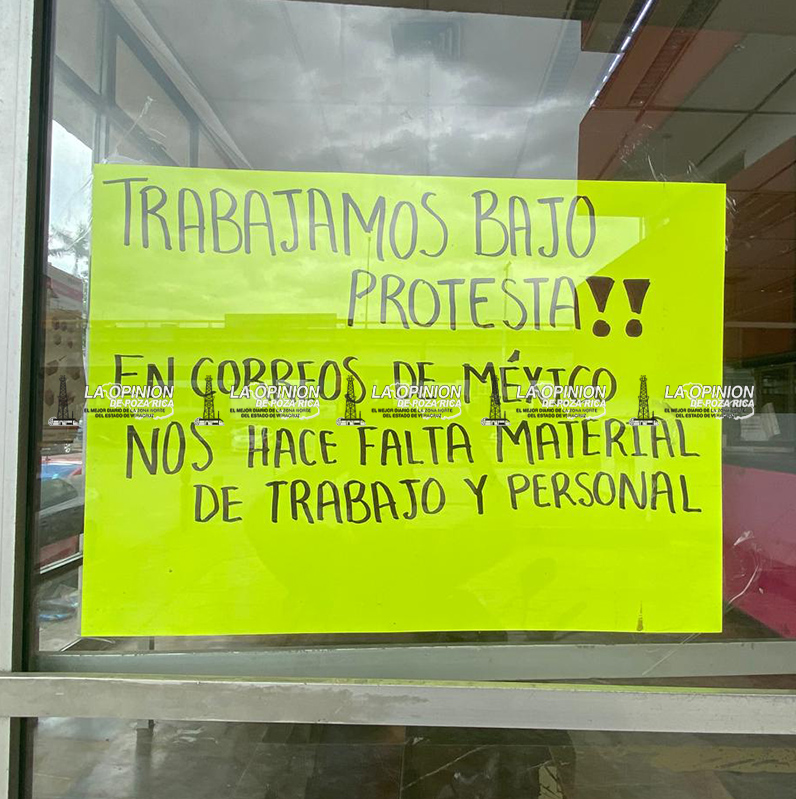 TRABAJAMOS BAJO
PROTESTA!!
EN CORREOS DE MÉXICO
LA OPINION LA OPINION LA OPINION LA OPINION LA OPINION
DE POZA RICA DE POZA RICA DE POZA RICA DE POZA RICA DE POZA RICA
EL MEJOR DIARIO DE LA ZONA NORTE EL MEJOR DIARIO DE LA ZONA NORTE EL MEJOR DIARIO DE LA ZONA NORTE EL MEJOR DIARIO DE LA ZONA NORTE EL MEJOR DIARIO DE LA ZONA NORTE
DEL ESTADO DE VERACRUZ DEL ESTADO DE VERACRUZ DEL ESTADO DE VERACRUZ DEL ESTADO DE VERACRUZ DEL ESTADO DE VERACRUZ
NOS HACE FALTA MATERIAL
DE TRABAJO Y PERSONAL